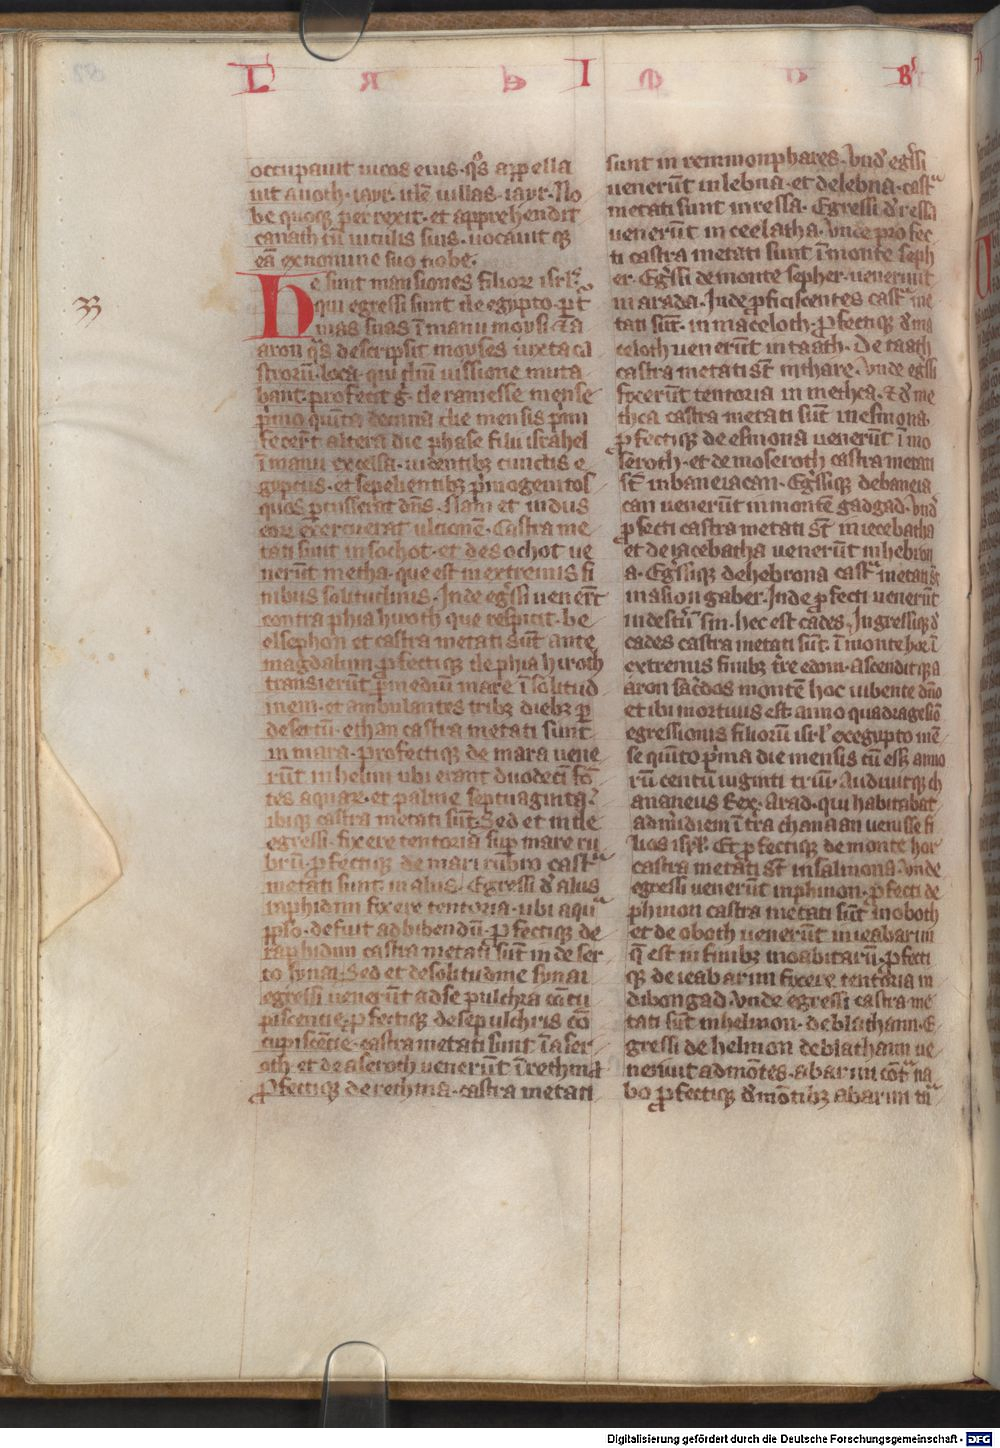 L I B'
33
occupauit uicos eius · q̄s appella
uit auoth · iayr · id ē uillas · iayr · No
be quoq; perrexit · et apprehendit
canath cū uiculis suis · uocauit q;
eā ex nomine suo nobe ·
He sunt mansiones filioꝝ isrl'
qui egressi sunt de egypto · p̲ t
mas suas ī manu moysi ⁊ a
aron q̄s descripsit moyses iuxta ca
stroꝝ loca · qui dn̄i iussione muta
bant · profecti g̊ · de ramesse mense
p̍mo quīta decima die mensis p̍mi
fecer̄t altera die phase filii israhel
ī manu excelsa · uidentib; cunctis e
gyptiis · et sepelientib; p̍mogenitos
quos p̲cusserat dn̄s · Nam et in diis
eoꝝ exercuerat ultionē · Castra me
tati sunt in sochot · et de sochot ue
nerūt in etha · que est in extremis fi
nibus solitudinis · Inde eg̍ssi uener̄t
contra phiahiroth que respicit · be
elsephon et castra metati sūt ante
magdalum p̲fectiq; de phiahiroth
transierūt p̲ mediū mare ī solitud
inem · et ambulantes trib; dieb; p̲
desertū · ethan castra metati sunt
in mara · Profectiq; de mara uene
rūt in helim ubi erant duodecī fō
tes aquaꝝ · et palme septuaginta
ibiq; castra metati sūt · Sed et inde
egressi · fixere tentoria sup̲ mare ru
brū · p̲fectiq; de mari rubro castᵃ
metati sunt in alus · Egressi d̄ alus
raphidim fixere tentoria · ubi aquᵃ
pp̄lo · defuit ad bibendū · p̲fectiq; de
raphidim castra metati sūt in deser
to synai · Sed et de solitudine synai
egressi uenerūt ad sepulchra cōcu
piscentie · p̲fectiq; de sepulchris cō
cupiscētie · castra metati sunt ī aser
oth · et de aseroth uenerūt ī rethma
p̲fectiq; de rethma · castra metati
sunt in remmonphares · Vnd̄ eg̍ssi
uenerūt in lebna · et de lebna · castᵃ
metati sunt in ressa · Egressi d̄ ressa
uenerūt in ceelatha · Vnde profec
ti castra metati sunt ī monte seph
er · Eg̍ssi de monte sepher · uenerunt
in arada · Inde p̲ficiscentes castᵃ me
tati sūt · in maceloth · p̲fectiq; d̄ ma
celoth uenerūt in taath · De taath
castra metati sr̄t in thare · Vnde eg̍ssi
fixerūt tentoria in methca · ⁊ d̄ me
thca castra metati sūt in esmona ·
p̲fectiq; de esmona uenerūt ī mo
seroth · et de moseroth castra metati
sr̄t in baneiacan · Eg̍ssiq; de baneia
can uenerūt in montē gadgad · Vnd̄
p̲fecti castra metati sr̄t in iecebatha
et de iacebatha uenerūt in hebron
a · Eg̍ssiq; de hebrona castᵃ metati sr̄t
in asiongaber · Inde p̲fecti uenerūt
in desertū sin · hec est cades · Ingressiq; d̄
cades castra metati sūt · ī monte hor ī
extremis finib; t̄re edom · Ascenditq; a
aron sac̄dos montē hor iubente dn̄o
et ibi mortuus est · anno quadragesīo
egressionis filiorū isrl' ex egypto mē
se quīto p̍ma die mensis cū ess; anno
rū centū uiginti triū · Audiuitq; ch
ananeus Rex · Arad · qui habitabat
ad m̍idiem ī t̄ra chanaan uenisse fi
lios isr̄l · Et p̲fectiq; de monte hor
castra metati sr̄t in salmona · Vnde
egressi uenerūt in phinon · p̲fecti de
phinon castra metati sūt in oboth
et de oboth uenerūt in ieabarim
q̄ est in finib; moabitarū · p̲fecti
q; de ieabarim fixere tentoria in
dibongad Vnde egressi castra me
tati sūt in helmon · deblathaim · E
gressi de helmon deblathaim ue
nerunt ad mōtes · abarim cōtᵃ na
bo p̲fectiq; d̄ mōtib; abarim tᵃ
Digitalisierung gefördert durch die Deutsche Forschungsgemeinschaft - DFG